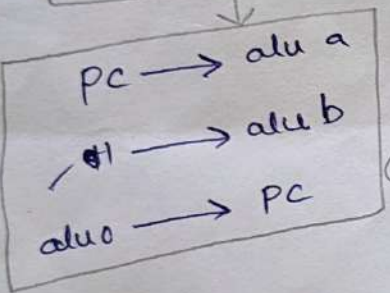 PC → alu a
+1 → alu b
aluo → PC